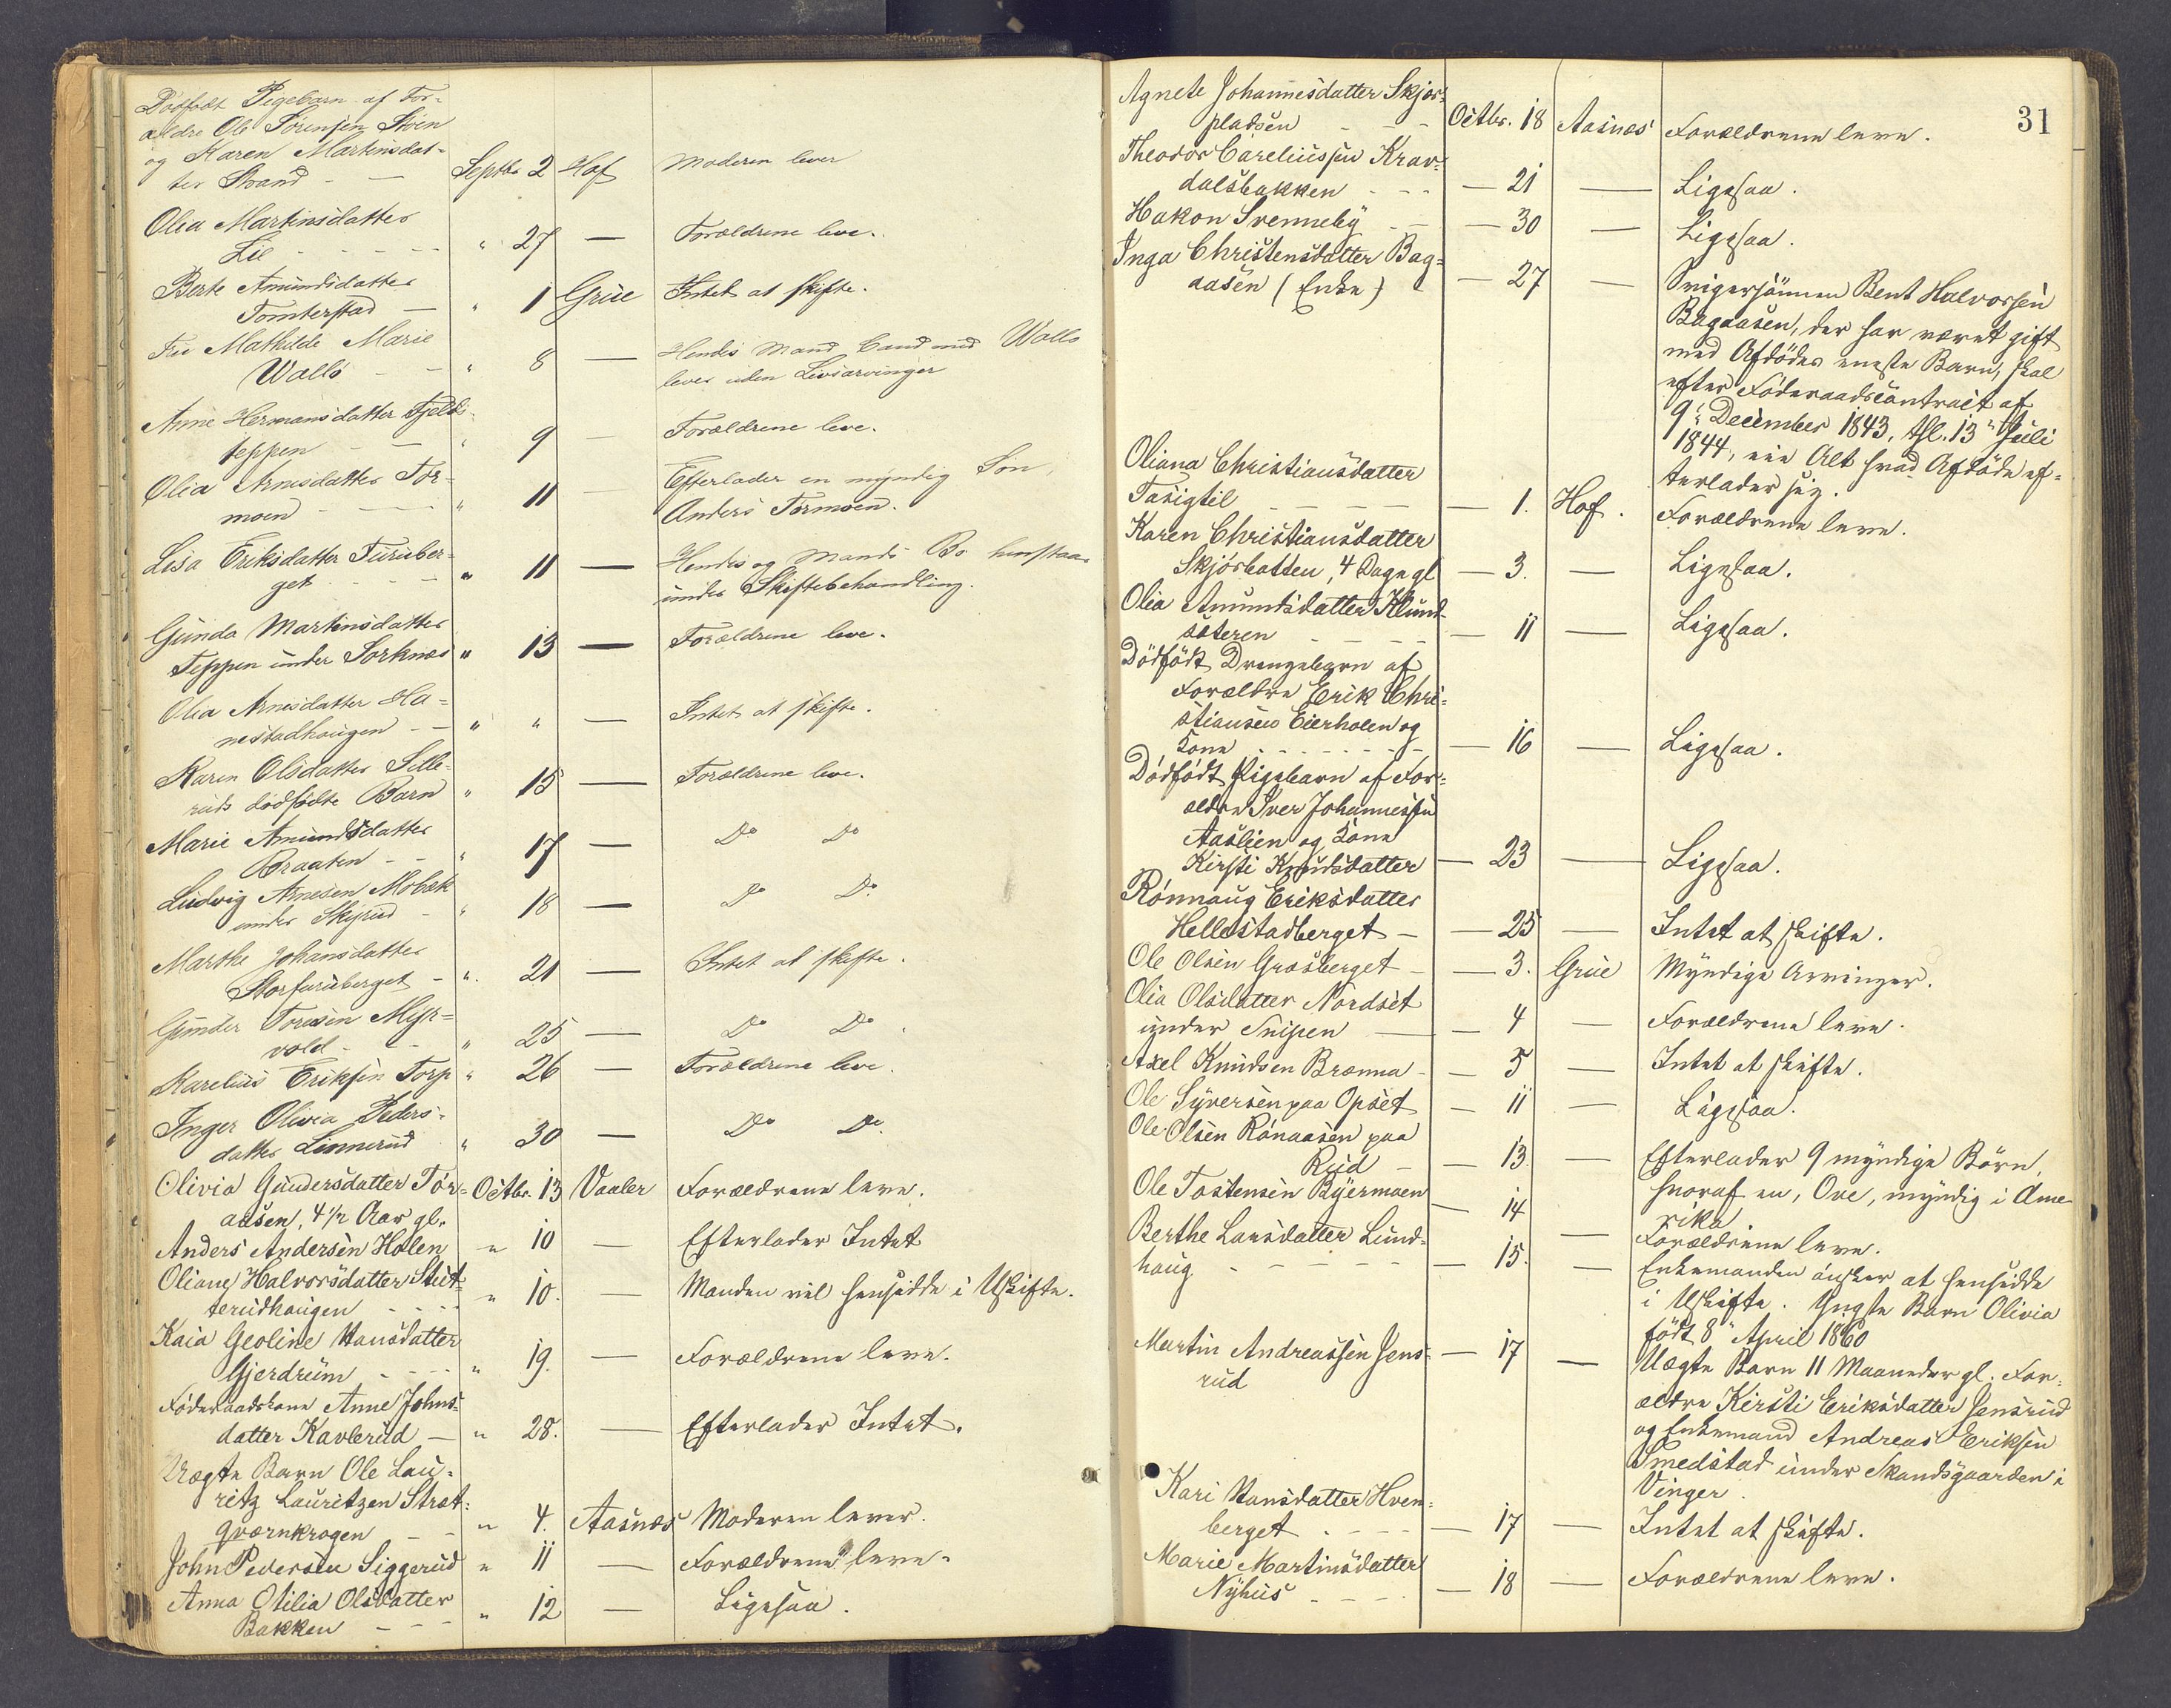 Dødfødt Pigebarn af For-
ældre Ole Sørensen Støen
og Karen Martinsdat-
ter Strand - — Septbr 2 Hof Moderen lever
Olia Martinsdatter
Lie - - - - - " 27 — Forældrene leve.
Berte Amundsdatter
Tomterstad — " 1 Grue Intet at skifte.
Fru Mathilde Marie
Wallø - - " 8 — Hendes Mand Cand med Wallø
lever uden Livsarvinger
Anne Hermansdatter Fjeld-
teppen - — " 9 — Forældrene leve.
Olia Arnesdatter Tor-
moen - — " 11 — Efterlader en myndig Søn,
Anders Tormoen.
Lisa Eriksdatter Furuber-
get - - - " 11 — Hendes og Mands Bo henstaar
under Skiftebehandling.
Gunda Martinsdatter
Teppen under Sorknæs " 13 — Forældrene leve.
Olia Arnesdatter Ha-
nestadhougen - - " " — Intet at skifte.
Karen Olsdatter Sille-
ruds dødfødte Barn " 15 — Forældrene leve.
Marie Amundsdatter
Braaten - - " 17 — Do Do
Ludvig Arnesen Møbæk
under Skyrud - " 18 — Do Do
Marthe Johansdatter
Storfuruberget - " 21 — Intet at skifte.
Gunder Toresen Myr-
vold - - - " 25 — Do Do.
Karelius Eriksen Torp " 26 — Forældrene leve.
Inger Olivia Peders-
datter Linnerud " 30 — Do Do.
Olivia Gundersdatter Tor-
aasen, 4 1/2 Aar gl. Octbr. 13 Vaaler Forældrene leve.
Anders Andersen Holen " 10 — Efterlader Intet
Oliane Halvorsdatter Stut-
terudhaugen - - - " 10. — Manden vil hensidde i Uskifte.
Kaia Geoline Hansdatter
Gjerdrum - - - " 19. — Forældrene leve.
Føderaadskone Anne Johns-
datter Kavlerud — " 28. — Efterlader Intet.
Uægte Barn Ole Lau-
ritz Lauritzen Stræt-
qværnkrogen - - " 4. Aasnæs Moderen lever.
John Pedersen Siggerud " 11 — Forældrene leve.
Anna Otilia Olsdatter
Bakken - - - " 12 — Ligesaa.
31
Agnete Johannesdatter Skjær-
pladsen - - - Octbr. 18 Aasnæs Forældrene leve.
Theodor Careliussen Krav-
dalsbakken - - - — 21 — Ligesaa.
Hakon Svenneby - - — 30 — Ligesaa.
Inga Christensdatter Bag-
aasen (Enke) - — 27 — Svigersønnen Bent Halvorsen
Bagaasen, der har været gift
med Afdødes eneste Barn, skal
efter Føderaadscontract af
9" December 1843, thl. 13" Juli
1844, eie Alt hvad Afdøde ef-
terlader sig.
Oliana Christiansdatter
Tasigtil - - - - — 1. Hof. Forældrene leve.
Karen Christiansdatter
Skjørbatten, 4 Dage gl — 3. — Ligesaa.
Olia Amundsdatter Klund-
sæteren - - - - — 11 — Ligesaa.
Dødfødt Drengebarn af
Forældre Erik Chri-
stiansen Eierholen og
Kone - - - - - - — 16 — Ligesaa.
Dødfødt Pigebarn af For-
ældre Iver Johannessen
Aaslien og Kone
Kirsti Knudsdatter — 23 — Ligesaa.
Rønnaug Eriksdatter
Hellestadberget - — 25 — Intet at skifte.
Ole Olsen Græsberget - — 3. Grue Myndige Arvinger.
Olia Olsdatter Nordset
under Snipen — — 4 — Forældrene leve.
Axel Knudsen Brænna - — 5 — Intet at skifte.
Ole Syversen paa Opset — 11 — Ligesaa.
Ole Olsen Rønaasen paa
Rud - — 13. — Efterlader 9 myndige Børn,
hvoraf en, Ove, myndig i Ame-
rika
Ole Tostensen Byermoen — 14 — Forældrene leve.
Berthe Larsdatter Lund-
haug - - - - - — 15. — Enkemanden ønsker at hensidde
i Uskifte. Yngste Barn Olivia
født 8" April 1860
Martin Andreassen Jens-
rud — 17 — Uægte Barn 11 Maaneder gl. For-
ældre Kirsti Eriksdatter Jensrud
og Enkemand Andreas Eriksen
Smedstad under Skandsgaarden i
Vinger.
Kari Hansdatter Hven-
berget - - - - — 17 — Intet at skifte.
Marie Martinsdatter
Nyhus - - - - — 18 — Forældrene leve.